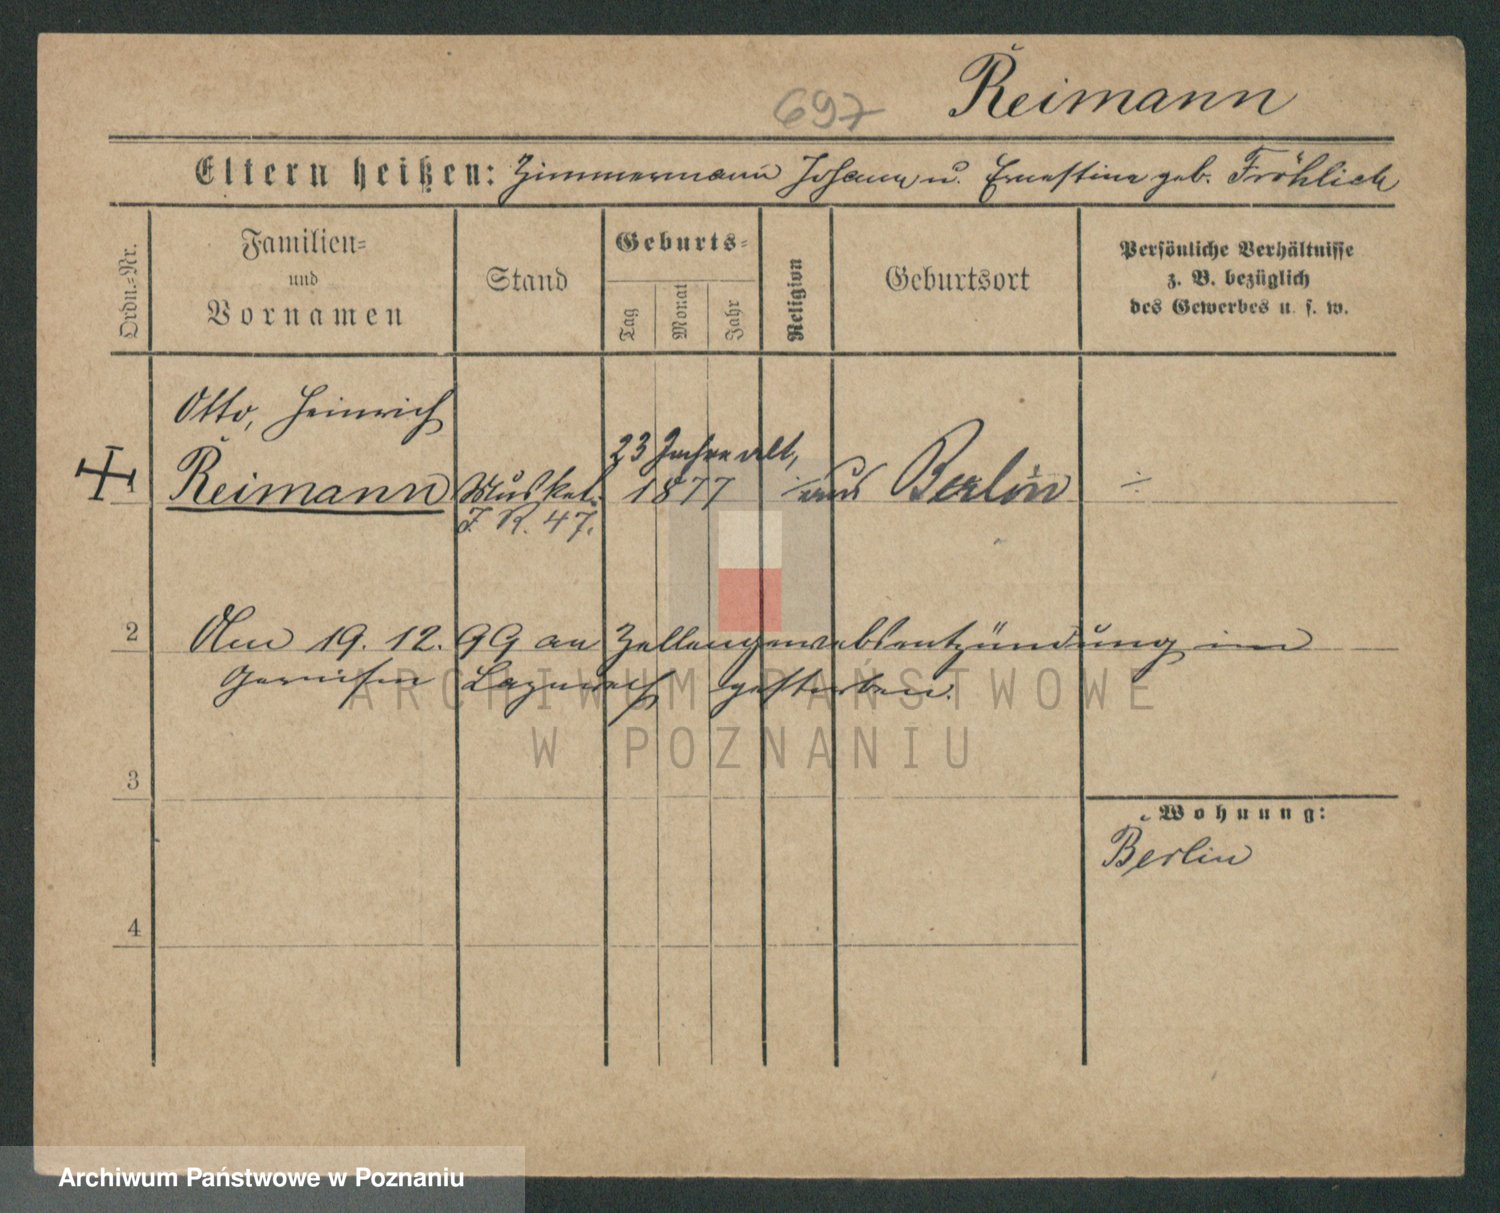 697 Reimann
Eltern heißen: Zimmermann Johann u. Ernestine geb. Fröhlich
Ordn.-Nr.
Familien-
und
Vornamen
Stand
Geburts-
Tag
Monat
Jahr
Religion
Geburtsort
Persönliche Verhältnisse
z. B. bezüglich
des Gewerbes u. s. w.
Otto, Heinrich
23 Jahre alt,
1 Reimann Musket. 1877 aus Berlin ÷
I. R. 47.
2 Am 19. 12. 99 an Zellengewebsentzündung im
Garnison Lazareth gestorben.
ARCHIWUM PAŃSTWOWE
W POZNANIU
3
Wohnung:
Berlin
4
Archiwum Państwowe w Poznaniu